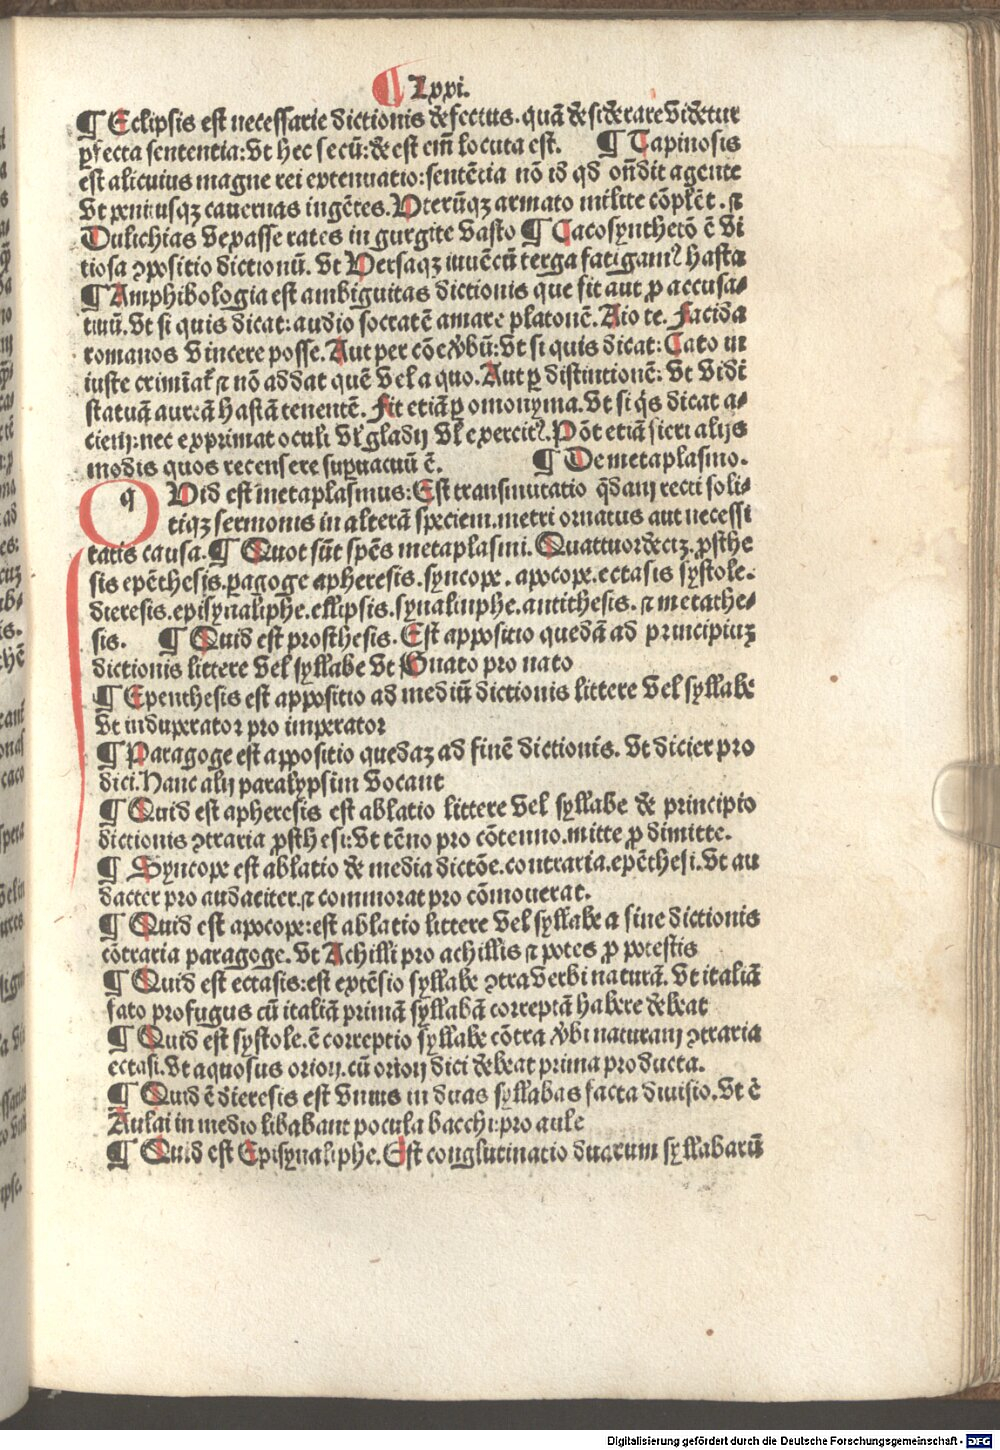 ¶ Lxxi.
¶ Eclipsis est necessarie dictionis defectus. quā desiderare videtur
ꝑfecta sententia: Vt hec secū: de est em̄ locuta est. ¶ Tapinosis
est alicuius magne rei extenuatio: sentētia nō id qd̄ on̄dit agente
Vt penitusqꝫ cauernas ingētes. Vterūqꝫ armato milite cōplēt. ⁊
Dulichias vexasse rates in gurgite vasto ¶ Cacosynthetō ē vi
tiosa ꝯpositio dictionū. Vt Versaqꝫ iuuēcū terga fatigamꝰ hasta
¶ Amphibologia est ambiguitas dictionis que fit aut ꝑ accusa⸗
tiuū. Vt si quis dicat: audio socratē amare platonē. Aio te. Facida
romanos vincere posse. Aut per cōe v̄bū: Vt si quis dicat: Cato in
iuste crimīat̉ ⁊ nō addat quē vel a quo. Aut ꝑ distinctionē: Vt vidi
statuā aureā hastā tenentē. Fit etiā ꝑ omonyma. Vt si q̄s dicat a⸗
ciem: nec exprimat oculi vl̓ gladij vl̓ exercitꝰ. Pōt etiā fieri alijs
modis quos recensere supuacuū ē. ¶ De metaplasmo.
q Vid est metaplasmus: Est transmutatio q̄dam recti soli⸗
tiqꝫ sermonis in alterā speciem. metri ornatus aut necessi
tatis causa. ¶ Quot sūt spēs metaplasmi. Quattuordeciꝫ. ꝓsthe
sis epēthesis. ꝑagoge apheresis. syncope. apocope. ectasis systole.
dieresis. episynaliphe. ellipsis. synaliuphe. antithesis. ⁊ metathe⸗
sis. ¶ Quid est prosthesis. Est appositio quedā ad principiuꝫ
dictionis littere vel syllabe Vt Gnato pro nato
¶ Epenthesis est appositio ad mediū dictionis littere vel syllabe
Vt induperator pro imperator
¶ Paragoge est appositio quedaꝫ ad finē dictionis. Vt dicier pro
dici. Hanc alij paralypsim vocant
¶ Quid est apheresis est ablatio littere vel syllabe de principio
dictionis ꝯtraria ꝓsthesi: Vt tēno pro cōtenno. mitte ꝓ dimitte.
¶ Syncope est ablatio de media dictōe. contraria. epēthesi. Vt au
dacter pro audaciter. ⁊ commorat pro cōmouerat.
¶ Quid est apocope: est ablatio littere vel syllabe a fine dictionis
cōtraria paragoge. Vt Achilli pro achillis ⁊ potes ꝓ potestis
¶ Quid est ectasis: est extēsio syllabe ꝯtra verbi naturā. Vt italiā
fato profugus cū italiā primā syllabā correptā habere debeat
¶ Quid est systole. ē correptio syllabe cōtra v̄bi naturam ꝯtraria
ectasi. Vt aquosus orion. cū orion dici debeat prima producta.
¶ Quid ē dieresis est vnius in duas syllabas facta diuisio. Vt ē
Aulai in medio libabant pocula bacchi: pro aule
¶ Quid est Episynaliphe. Est conglutinatio duarum syllabarū
Digitalisierung gefördert durch die Deutsche Forschungsgemeinschaft - DFG